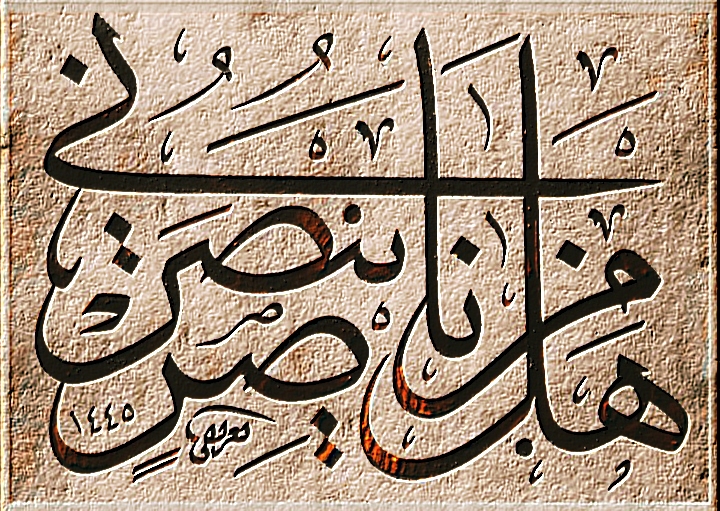 هل من ناصرٍ ينصرني
١٤٤٥